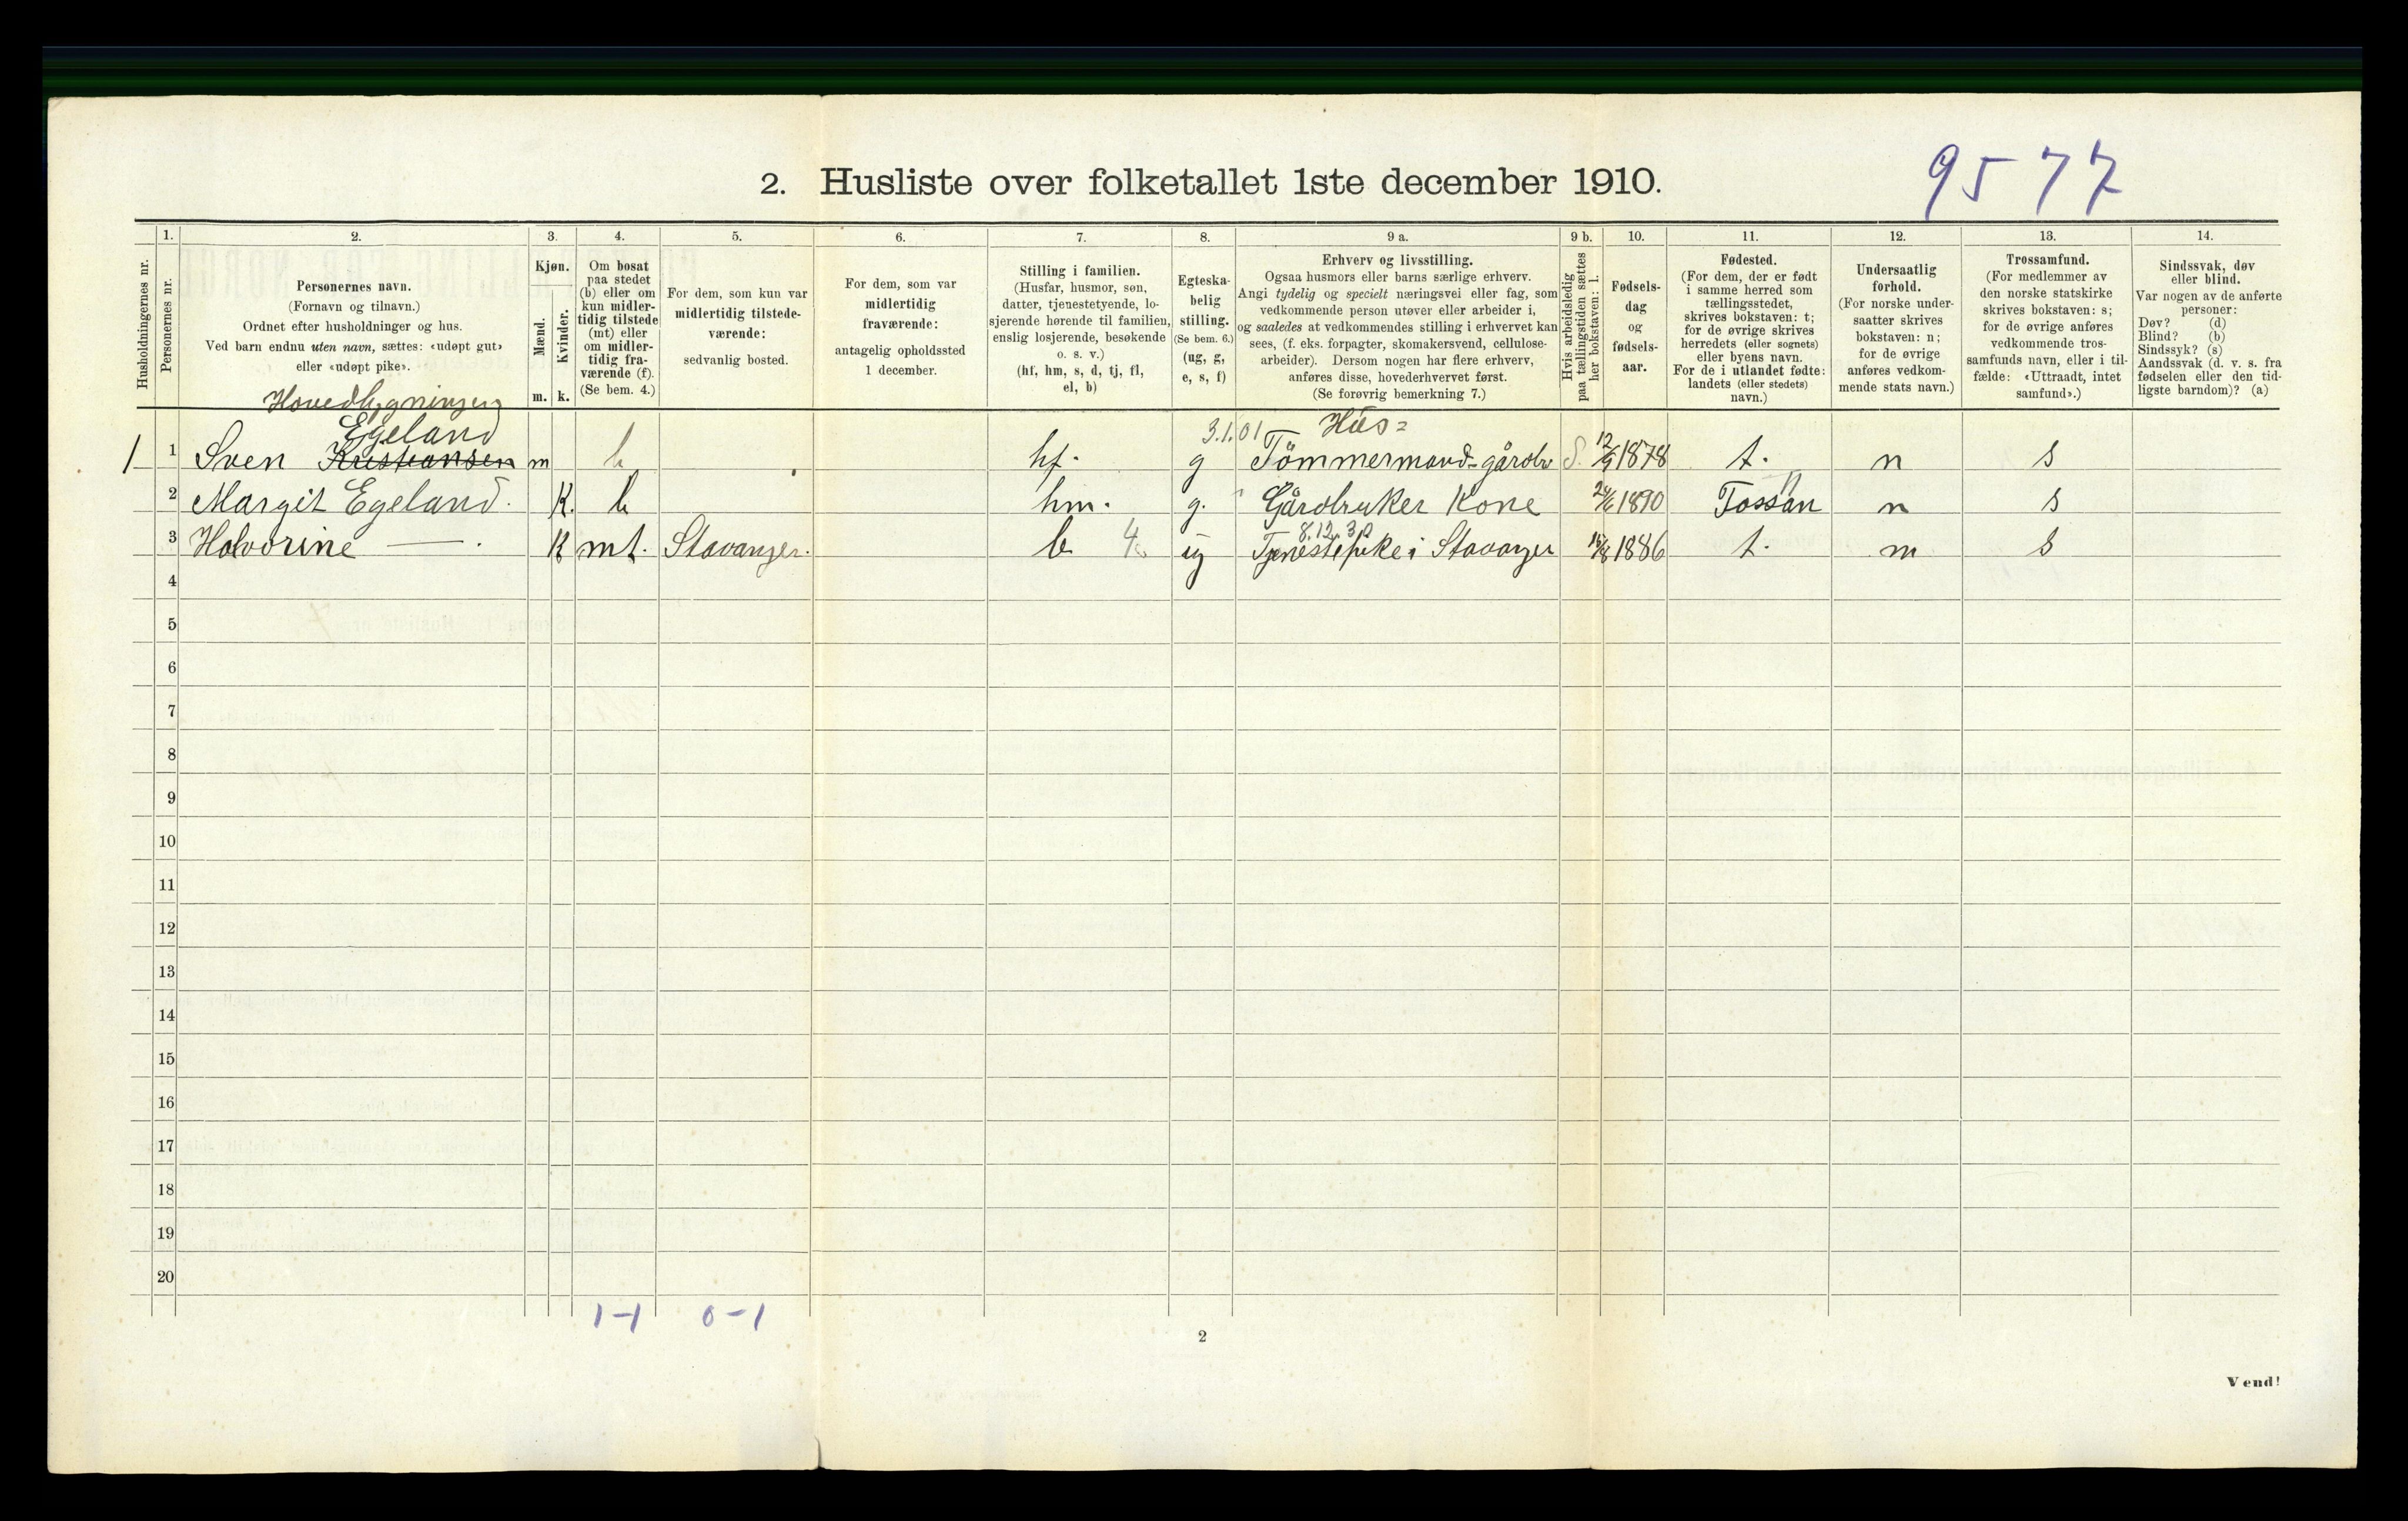 9577
2. Husliste over folketallet 1ste december 1910.
1. 2. 3. 4. 5. 6. 7. 8. 9 a. 9 b. 10. 11. 12. 13. 14.
Husholdningernes nr.
Personernes nr.
Personernes navn.
(Fornavn og tilnavn.)
Ordnet efter husholdninger og hus.
Ved barn endnu uten navn, sættes: «udøpt gut»
eller «udøpt pike».
Kjøn.
Mænd.
Kvinder.
m. k.
Om bosat
paa stedet
(b) eller om
kun midler-
tidig tilstede
(mt) eller
om midler-
tidig fra-
værende (f).
(Se bem. 4.)
For dem, som kun var
midlertidig tilstede-
værende:
sedvanlig bosted.
For dem, som var
midlertidig
fraværende:
antagelig opholdssted
1 december.
Stilling i familien.
(Husfar, husmor, søn,
datter, tjenestetyende, lo-
sjerende hørende til familien,
enslig losjerende, besøkende
o. s. v.)
(hf, hm, s, d, tj, fl,
el, b)
Egteska-
belig
stilling.
(Se bem. 6.)
(ug, g,
e, s, f)
Erhverv og livsstilling.
Ogsaa husmors eller barns særlige erhverv.
Angi tydelig og specielt næringsvei eller fag, som
vedkommende person utøver eller arbeider i,
og saaledes at vedkommendes stilling i erhvervet kan
sees, (f. eks. forpagter, skomakersvend, cellulose-
arbeider). Dersom nogen har flere erhverv,
anføres disse, hovederhvervet først.
(Se forøvrig bemerkning 7.)
Hvis arbeidsledig
paa tællingstiden sættes
her bokstaven: l.
Fødsels-
dag
og
fødsels-
aar.
Fødested.
(For dem, der er født
i samme herred som
tællingsstedet,
skrives bokstaven: t;
for de øvrige skrives
herredets (eller sognets)
eller byens navn.
For de i utlandet fødte:
landets (eller stedets)
navn.)
Undersaatlig
forhold.
(For norske under-
saatter skrives
bokstaven: n;
for de øvrige
anføres vedkom-
mende stats navn.)
Trossamfund.
(For medlemmer av
den norske statskirke
skrives bokstaven: s;
for de øvrige anføres
vedkommende tros-
samfunds navn, eller i til-
fælde: «Uttraadt, intet
samfund».)
Sindssvak, døv
eller blind.
Var nogen av de anførte
personer:
Døv? (d)
Blind? (b)
Sindssyk? (s)
Aandssvak (d. v. s. fra
fødselen eller den tid-
ligste barndom)? (a)
Hovedbygningen
Egeland 3.1.01 Hus=
1 1 Sven Kristiansen m b hf. g Tömmermand-gårdbr S. 12/9 1878 t. n s
2 Margit Egeland. K. b hm. g. Gårdbruker Kone 1890 Fossan n s
8.12.30
3 Halvorine — . K mt. Stavanger. b ug Tjenestepike i Stavanger 1886 t. n s
4
5
6
7
8
9
10
11
12
13
14
15
16
17
18
19
20
1-1 0-1
2
Vend!